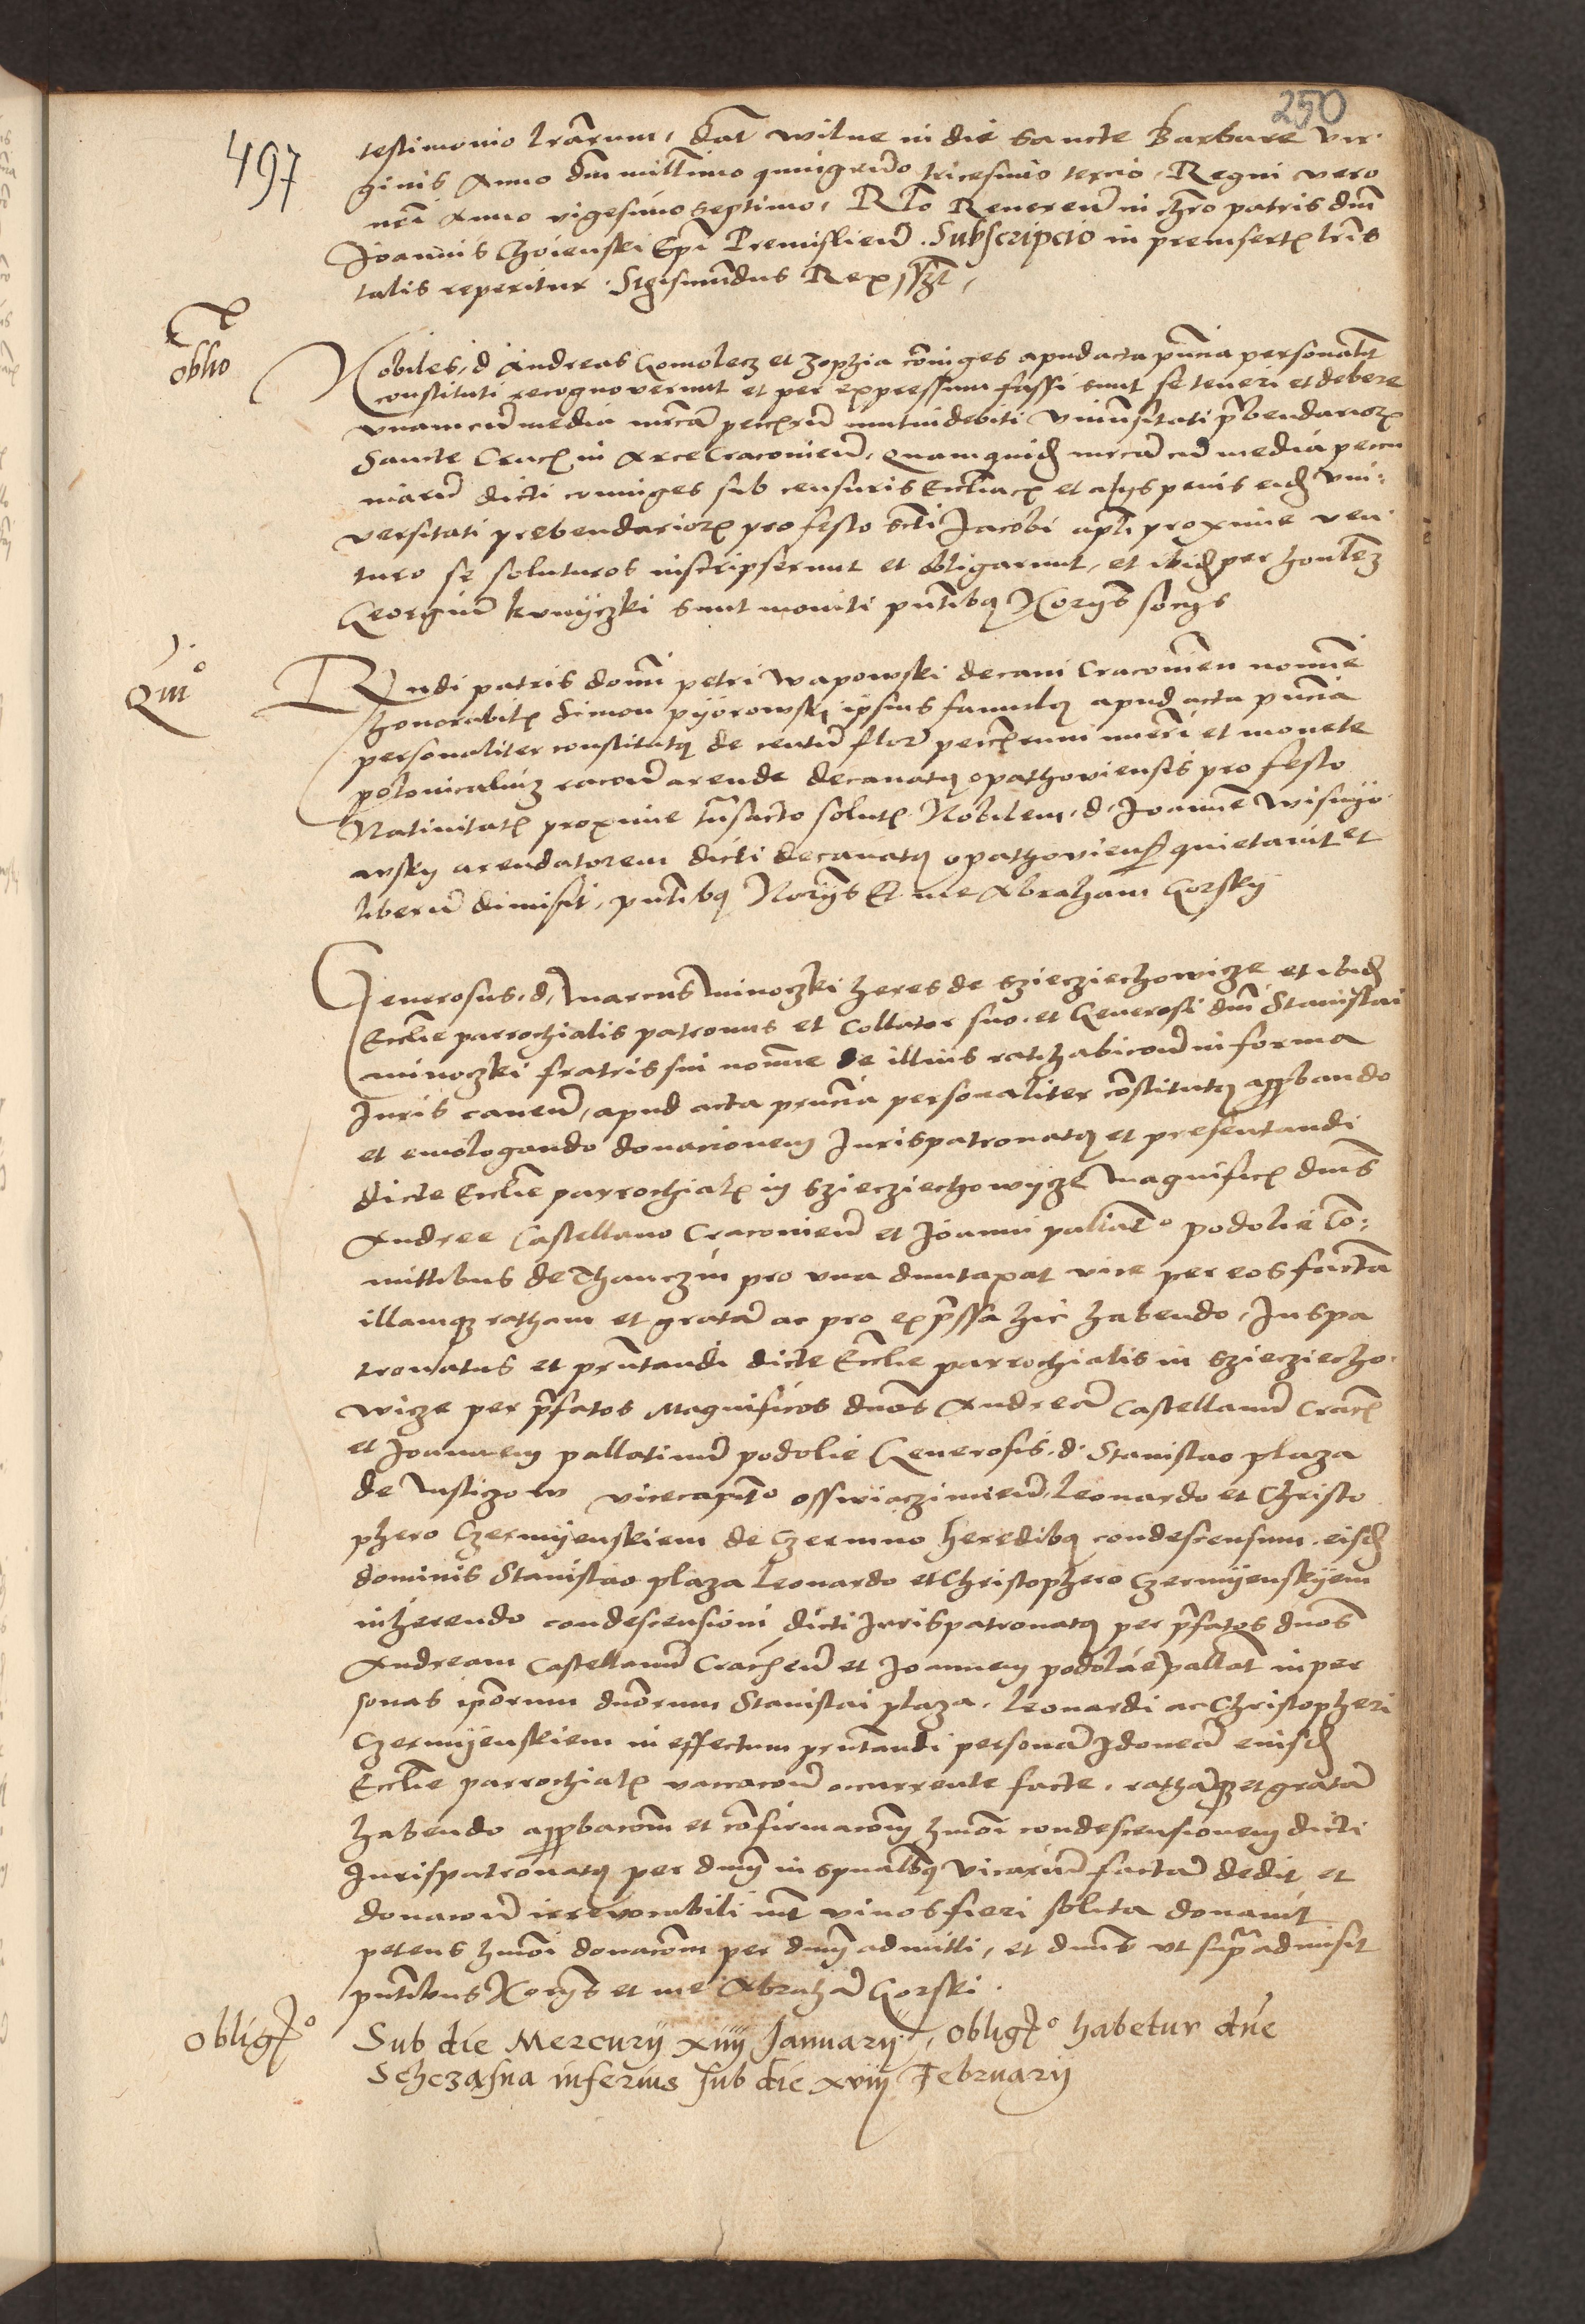 250
497
testimonio lrarum, dat wilne in die sancte Barbare vir-
ginis Anno dm millimo quingendo tricesimo tercio, Regni vero
nri Anno vigesimo septimo, Rlo Reverend in chro patris dni
Joannis Choienski Epi Premislien. Subscripcio in preinsertis lris
talis reperitur. Sigismundus Rex sszt,
oblio
Nobiles, d Andreas Gomolecz et Zophia coniuges apud acta pntia personalit
constituti recognoverunt et per expressum fassi sunt se teneri et debere
vnam cum media mrcas pecrum mutui debiti Vniuersitati prebendarior
Sancte Crucis in Arce Cracovien, quam quid mrcam cu media peccu
niaru dicti coniuges sub censuris Eccliacis et alys penis eid Vni-
versitati prebendarior pro festo scti Jacobi apli proxime ven
turo se soluturos inscripserunt et obligarunt, et ibid per honlem
Georgium kunyczki sunt moniti pntibq Norys socys
Quio
Rndi patris domi petri wapowski decani Cracovien nomine
honorabilis Simon pyorowsky ipsius famulq apud acta pntia
personaliter constitutq de centu flor pecrum mueri et monete
polonicaliuz racone arende decanatq opathoviensis pro festo
Natiuitatis proxime transacto solutis Nobilem, d. Joannem Wisnyo
wsky arendatorem dicti decanatq opathovien quietavit et
liberu dimisit, pntibq Norys Et me Abraham Gorsky
Generosus, d, Marcus minoczki heres de Szieziechowicze et ibid
Ecclie parrochialis patronus et Collator suo. et Generosi dni Stanislai
minoczki fratris sui nomine de illius ratihabicone in forma
Juris caven, apud acta prntia personaliter constitutq approbando
et emologando donacionem Jurispatronatq et presentandi
dicte Ecclie parrochialis in Szieziechowycze Magnificis dnis
Andree Castellano Cracovien et Joanni palatio podolie Co-
mittibus de Thanczin pro vna duntaxat vice per eos facta
illamqz ratham et grata ac pro expressa hic habendo, Juspa
tronatus et prntandi dicte Ecclie parrochialis in Szieziecho-
wicze per prfatos Magnificos dnos Andrea Castellanum Cracs
et Joannem pallatinum podolie Generosis. d. Stanislao plaza
de Msticzow vicecapito osswiaczimien, Leonardo et Christo
phero Czermyenskiem de Czermno heredibq condescensum. eisd
dominis Stanislao plaza Leonardo et Christophero Czermyenskyem
inherendo condescensioni dicti Jurispatronatq per prfatos dnos
Andream Castellanum Cracien et Joannem podolie pallat in per
sonas iporum dnorum Stanislai plaza. Leonardi ac Christopheri
Czermyenskiem in effectum prntandi persona Idonea eiusd
Ecclie parrochialis vaccacone occurrente facte. rathaqz et grata
habendo approbacom et confirmacom hmoi condescensionem dicti
Jurispatronatq per dnm in spualibq vicariu facta dedit et
donacone irreuocabili int viuos fieri solita donauit
petens hmoi donacom per dnm admitti, et dnus vt supra admisit
pntibus Norys et me Abraha Gorski.
Obligto
Sub die Mercurij xiiij Januarij, obligto habetur dne
Schczasna inferius sub die xviij Februarij